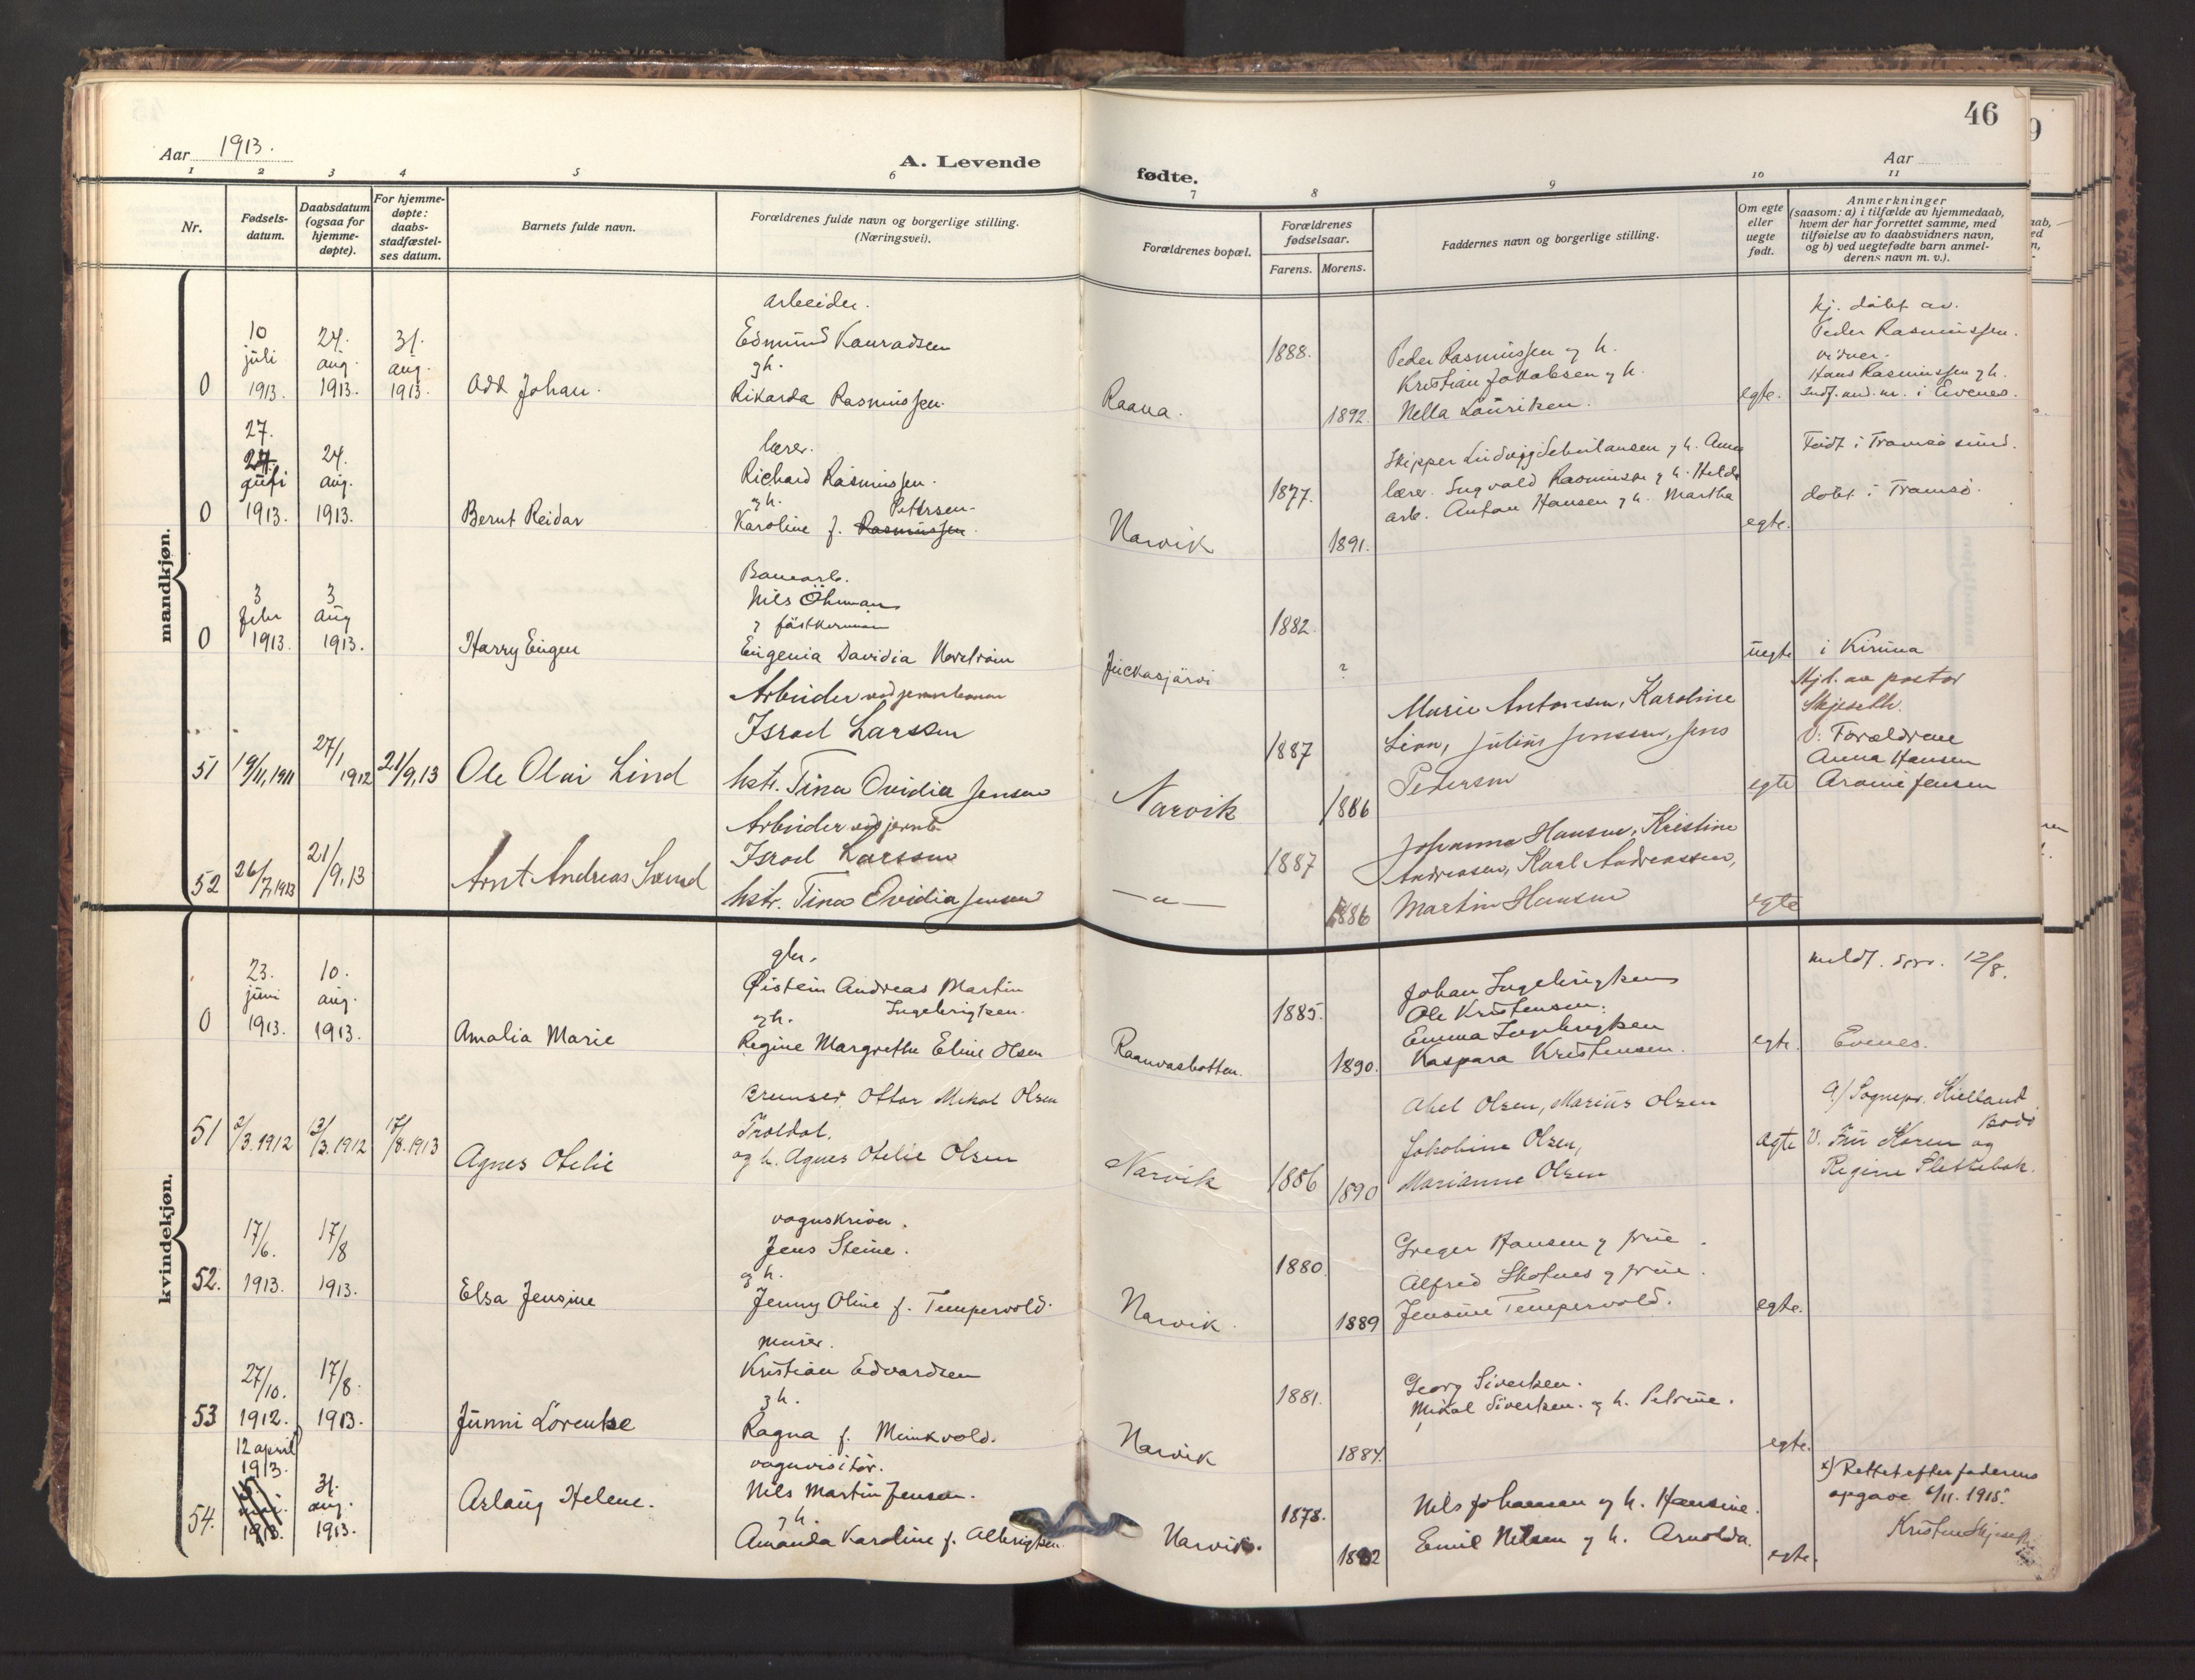 46
Aar 1913.
A. Levende
fødte.
Aar
1 2 3 4 5 6 7 8 9 10 11
Nr.
Fødsels-
datum.
Daabsdatum
(ogsaa for
hjemme-
døpte).
For hjemme-
døpte:
daabs-
stadfæstel-
ses datum.
Barnets fulde navn.
Forældrenes fulde navn og borgerlige stilling.
(Næringsvei).
Forældrenes bopæl.
Forældrenes
fødselsaar.
Farens. Morens.
Faddernes navn og borgerlige stilling.
Om egte
eller
uegte
født.
Anmerkninger
(saasom: a) i tilfælde av hjemmedaab,
hvem der har forrettet samme, med
tilføielse av to daabsvidners navn,
og b) ved uegtefødte barn anmel-
derens navn m. v.).
mandkjøn.
0
10
juli
1913.
24.
aug.
1913.
31.
aug.
1913.
Odd Johan.
arbeider.
Edmund Konradsen
g h.
Rikarda Rasmussen.
Raana.
1888.
1892.
Peder Rasmussen g h.
Kristian Jakobsen g h.
Nella Lauriksen.
egte.
hj. døbt av.
Peder Rasmussen.
vidner.
Hans Rasmussen g h.
i Evenes.
0
27.
24.
juli
1913.
24.
aug.
1913.
Bernt Reidar
lærer.
Richard Rasmussen.
g h. Petersen.
Karoline f. Rasmussen.
Narvik
1877.
1891.
Skipper Ludvig g h. Anna
lærer. Ingvald Rasmussen g h. Helda
arb. Anton Hansen g h. Martha
egte.
Født i Tromsøsund.
døbt i Tromsø.
0
3
febr
1913.
3
aug
1913.
Harry Eugen
Banearb.
Nils Öhman
g fästkvinnan
Eugenia Davidia Norström
Juckasjärvi
1882.
?
uegte
i Kiruna
51
19/11, 1911
27/1 1912
21/9, 13
Ole Olai Lind
Arbeider ved jernbanen
Israel Larssen
hstr. Tina Ovidia Jensen
Narvik
1887
1886
Marie Antonsen, Karoline
Linn, Julius Jenssen, Jens
Pedersen
egte
Hjd. av pastor
Skjeseth.
V: Forældrene
Anna Hansen
Jensen
52
26/7, 1913
21/9, 13
Arnt Andreas
Arbeider ved jernb.
Israel Larssen
hstr. Tina Ovidia Jensen
— " —
1887
1886
Johanna Hansen, Kristine
Andreasen, Karl Andreassen,
Martin Hansen
egte
kvindekjøn.
0
23.
juni
1913.
10.
aug.
1913.
Amalia Marie
gbr.
Øistein Andreas Martin
g h. Ingebrigtsen.
Regine Margrethe Eline Olsen
Raanvasbotten.
1885.
1890.
Johan Ingebrigtsen
Ole Kristensen.
Emma Ingebrigtsen
Kaspara Kristensen.
egte.
meldt. 12/8.
Evenes.
51
2/3. 1912
3/3. 1912
17/8. 1913
Agnes Otelie
Bremser Ottar Mikal Olsen
Troldal.
og h. Agnes Otelie Olsen
Narvik
1886
1890
Abel Olsen, Marius Olsen
Jakobine Olsen,
Marianne Olsen
ægte
a/ Sognepr. Kielland
Bodø
V. Fru Koren og
Regine Slettebak.
52.
17/6.
1913.
17/8
1913.
Elsa Jensine
vognskriver.
Jens Steine.
g h.
Jenny Oline f. Tempervold.
Narvik.
1880.
1889
Greger Hansen g frue.
Alfred Skotnes g frue.
Jensine Tempervold.
egte.
53
27/10.
1912.
17/8.
1913.
Junni Lorentse
murer.
Kristian Edvardsen
g h.
Ragna f. Meinkvold.
Narvik
1881.
1884.
Georg Sivertsen.
Mikal Sivertsen. g h. Petrine.
egte.
54.
12 april
1913.
1913.
31.
aug.
1913.
Aslaug Helene.
vognvisitør.
Nils Martin Jensen.
g h.
Amanda Karoline f. Albrigtsen.
Narvik.
1878.
1892
Nils Johansen g h. Hansine.
Emil Nilsen g h. Arnolda.
egte.
x) Rettet efter faderens
opgave 6/11. 1915.
Kristen Skjeseth